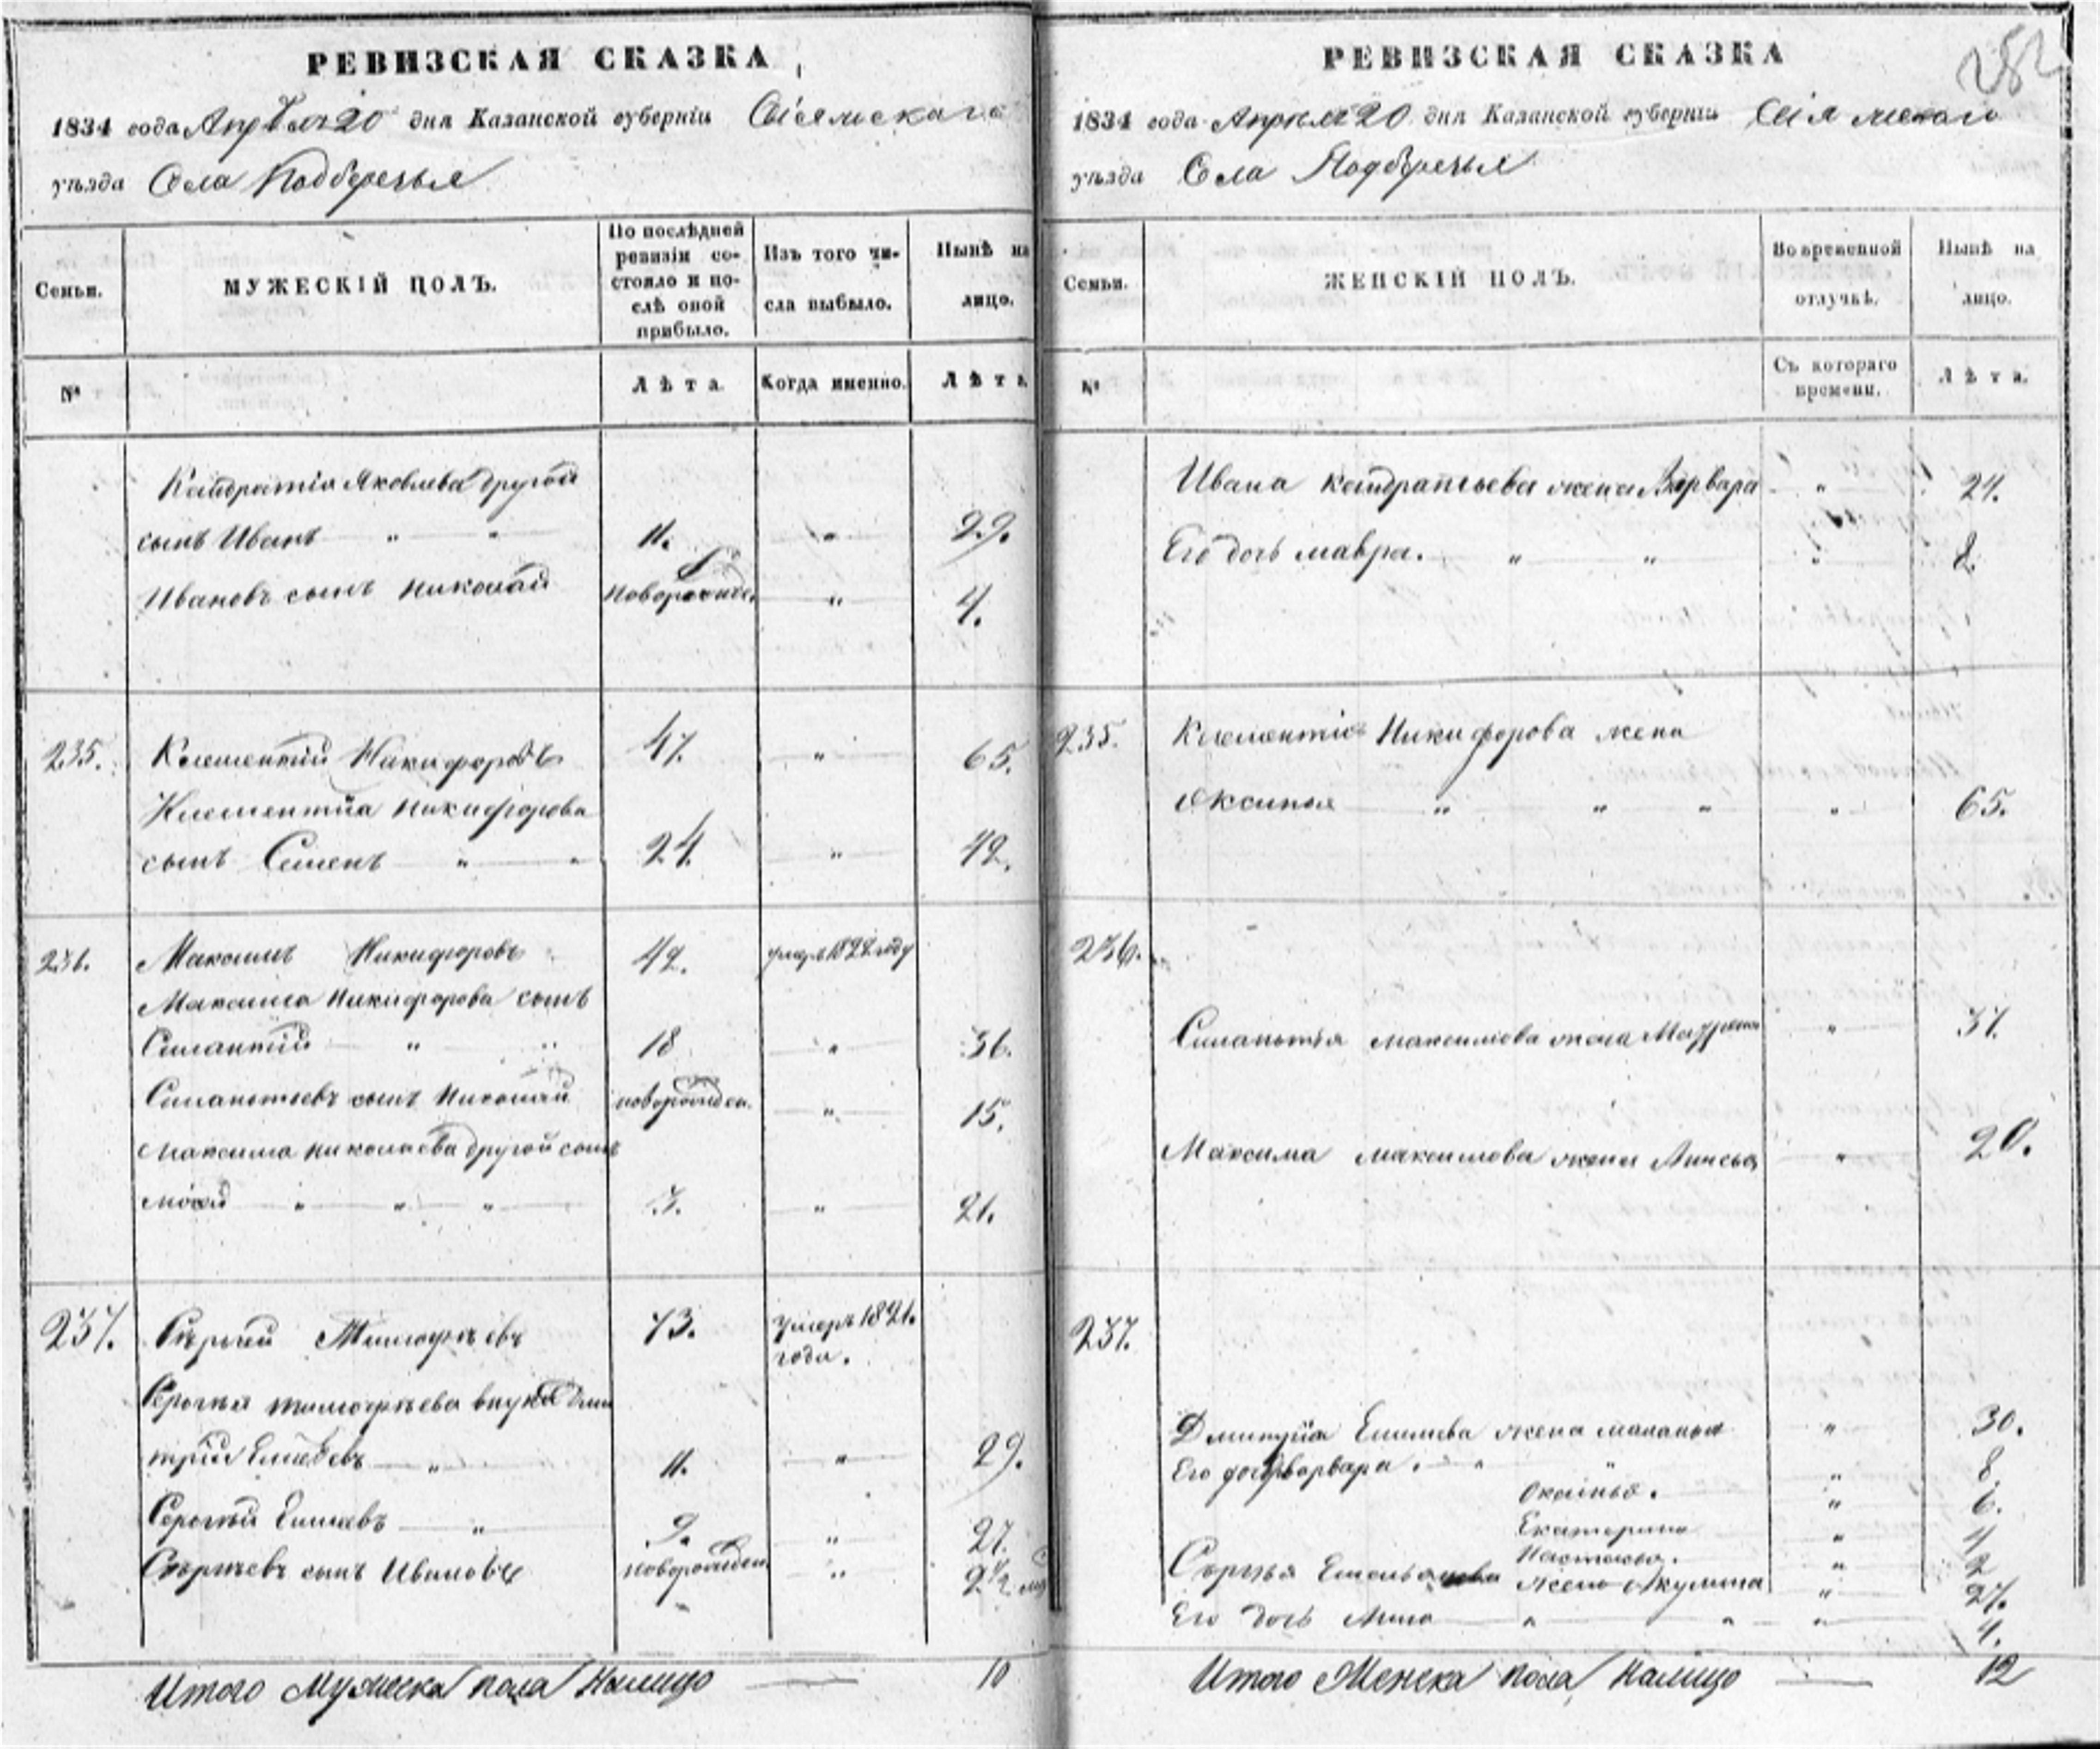 РЕВИЗСКАЯ СКАЗКА
1834 года Апрѣля 20 дня Казанской губернiи Свiяжскаго
уѣзда Села Подберезья
Семьи.
МУЖЕСКIЙ ПОЛЪ.
По послѣдней ревизiи состояло и послѣ оной прибыло.
Изъ того числа выбыло.
Нынѣ на лицо.
№
Лѣта.
Когда именно.
Лѣта.
Кандратiя Яковлева другой
сынъ Иванъ " " 11. " 29.
Ивановъ сынъ Николай новорожден. " 4.
235. Клементiй Никифоровъ 47. " 65.
Клементiя Никифорова
сынъ Семенъ " " 24. " 42.
236. Максимъ Никифоровъ 42. умеръ 1822 году
Максима Никифорова сынъ
Силантiй " " 18 " 36.
Силантьевъ сынъ Николай новорожден. " 15.
Максима Николаева другой сынъ
" " " 3. " 21.
237. Сергѣй Тимофѣевъ 73. умеръ 1821. года.
Сергѣя Тимофѣева внукъ Дми
трiй " 11. " 29.
Сергѣй " 9. " 27.
Сергѣевъ сынъ Ивановъ новорожден. " 2 1/2
Итого Мужеска пола налицо 10
РЕВИЗСКАЯ СКАЗКА
252
1834 года Апрѣля 20 дня Казанской губернiи Свiяжскаго
уѣзда Села Подберезья
Семьи.
ЖЕНСКIЙ ПОЛЪ.
Во временной отлучкѣ.
Нынѣ на лицо.
№
Съ котораго времени.
Лѣта.
Ивана Кандратьева жена Варвара " 24.
Его дочь Мавра. " " " 8.
235. Клементiя Никифорова жена
Аксинья " " " " 65.
236.
Силантья Максимова жена " 37.
Максима Максимова жена " 20.
237.
Дмитрiя жена Маланья " 30.
Его дочь Варвара. " " " 8.
" 6.
Екатерина " 4
Настасья. " 2
Сергѣя жена Акулина " 27.
Его дочь Анна " " " 4.
Итого Женска пола налицо 12